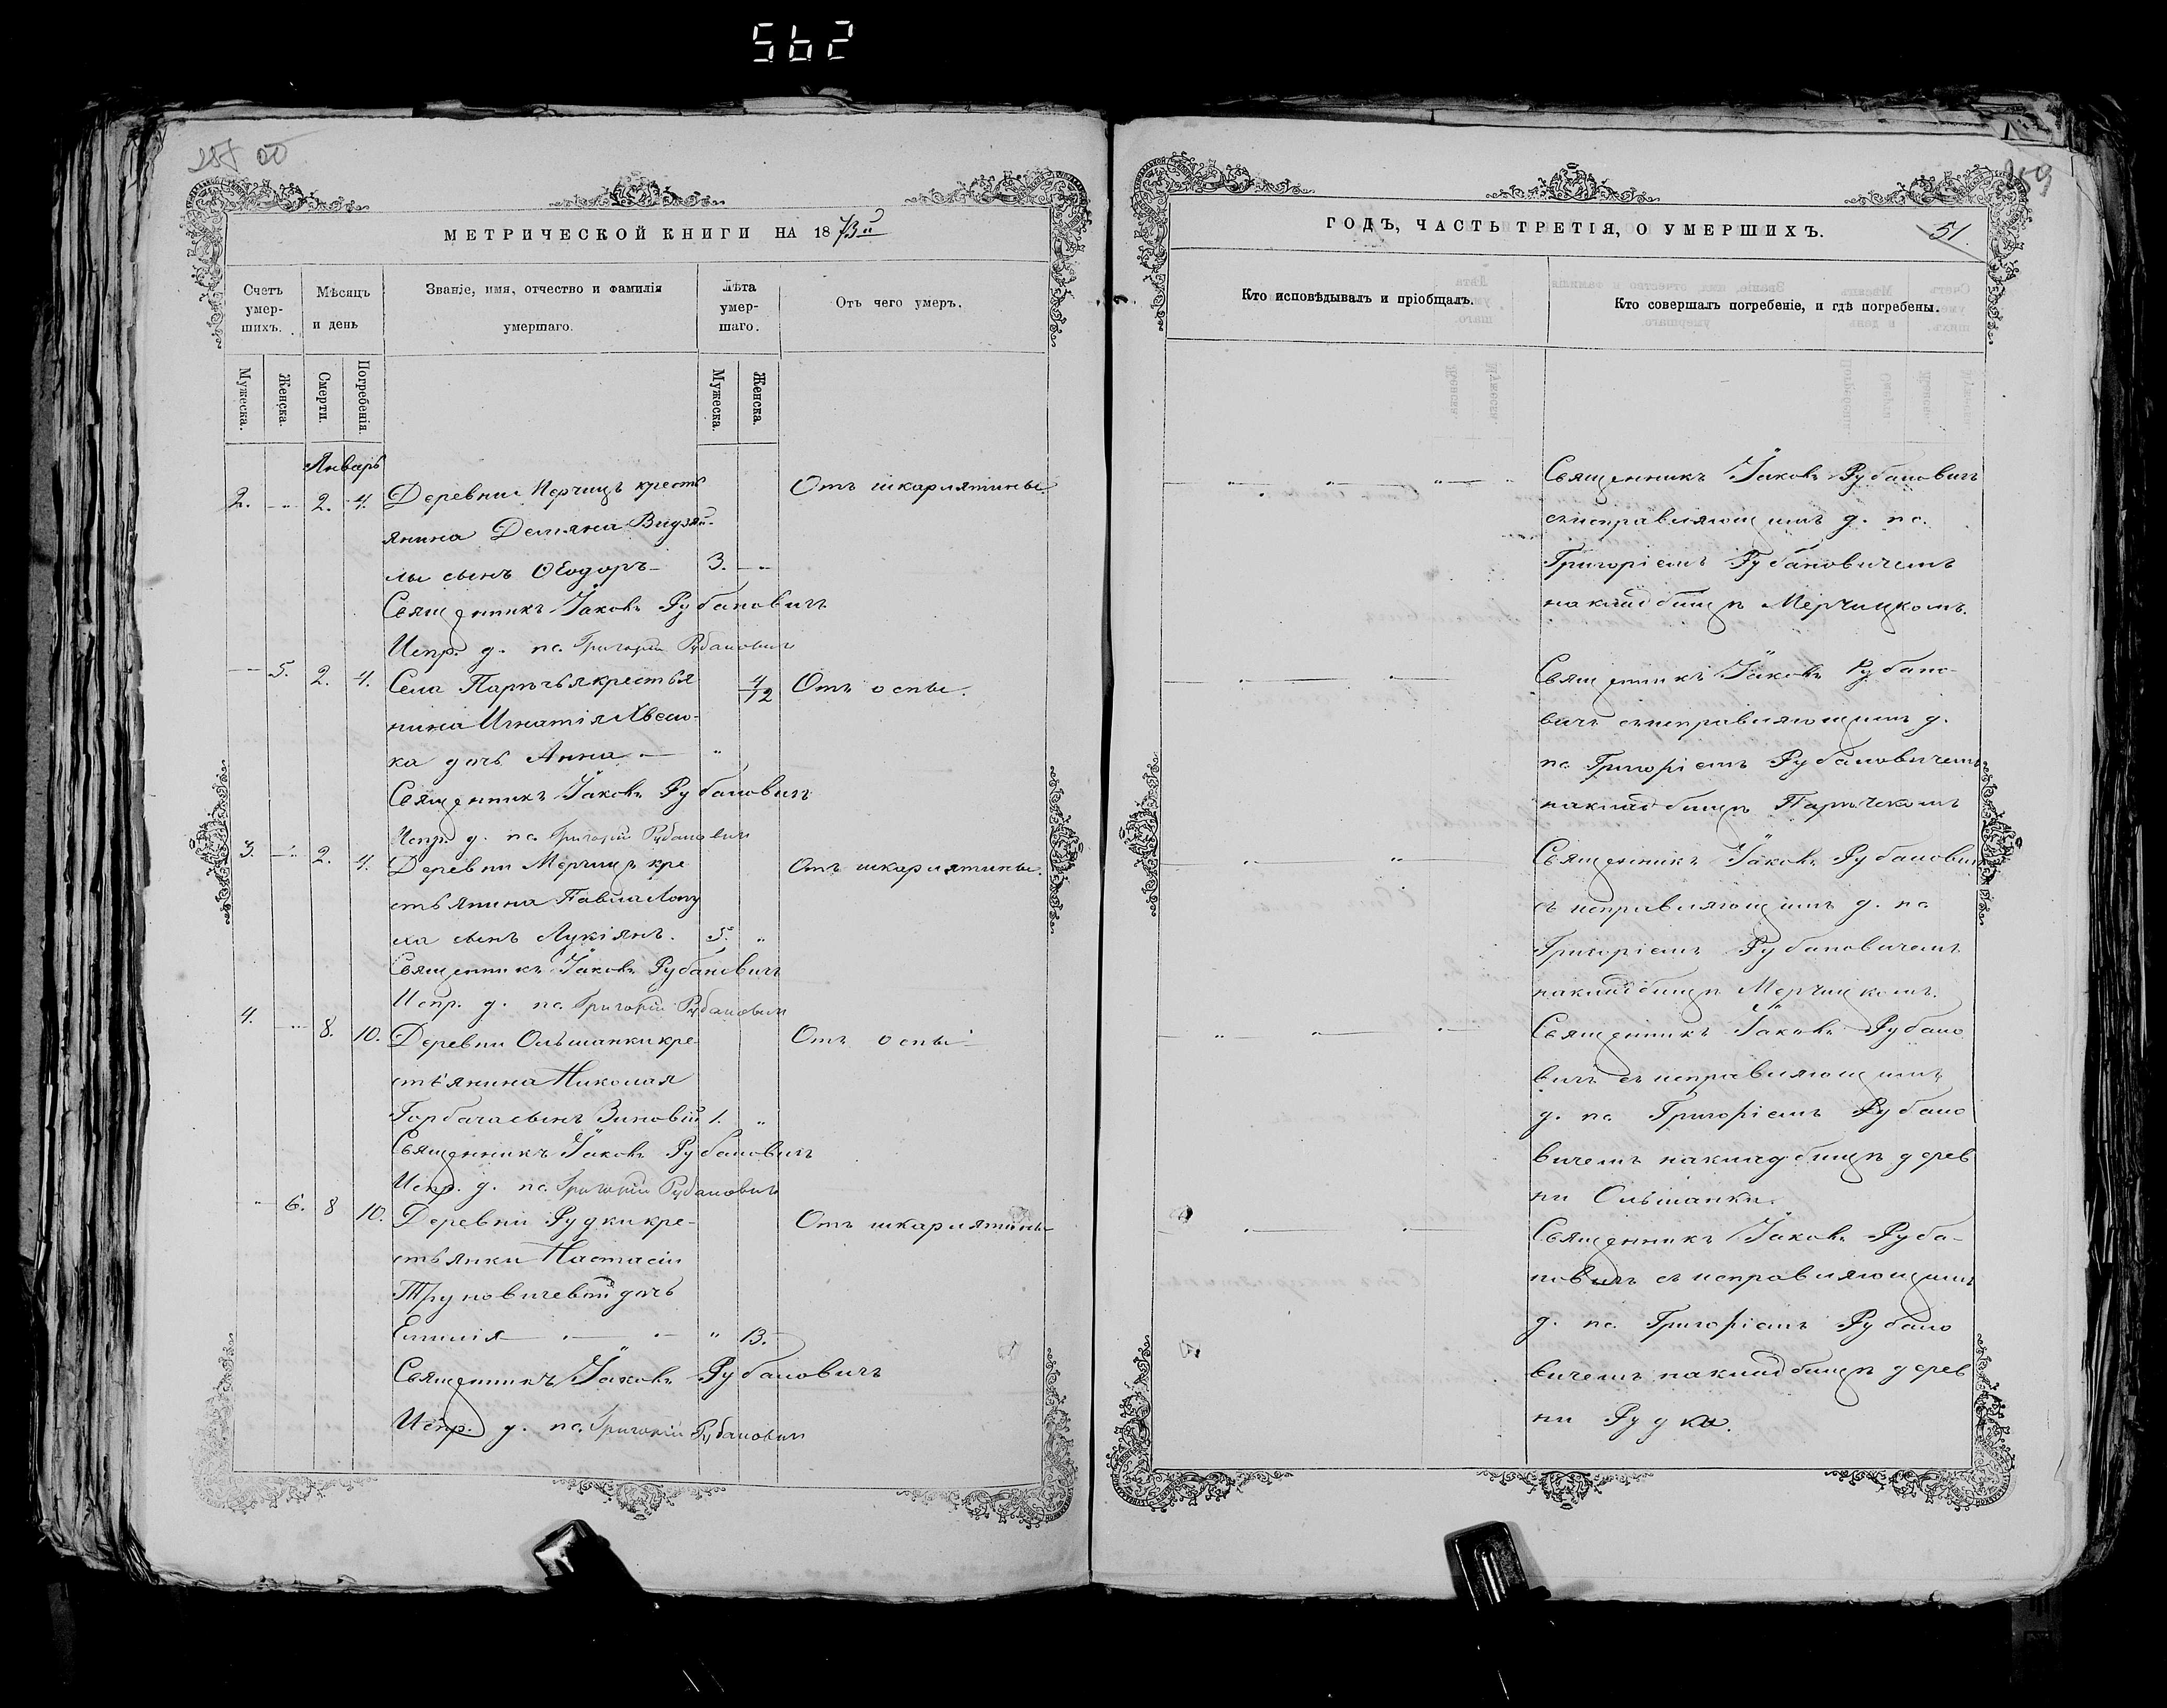 562
МЕТРИЧЕСКОЙ КНИГИ НА 1873й
Счетъ умершихъ.
Мѣсяцъ и день
Званіе, имя, отчество и фамилія умершаго.
Лѣта умершаго.
Отъ чего умеръ.
Мужеска.
Женска.
Смерти.
Погребенія.
Мужеска.
Женска.
Январь
2. 2. 4. Деревни Мерчицъ кресть Отъ шкарлятины
янина Демяна
сынъ Ѳеодоръ 3.
Священникъ Іаковъ Рубановичъ
Испр. д. пс. Григорій Рубановичъ
5. 2. 4. Села Парѣчья крестья 4/12 Отъ оспы.
нина Игнатія Хвесю-
ка дочь Анна
Священникъ Іаковъ Рубановичъ
Испр. д. пс. Григорій Рубановичъ
3. 2. 4. Деревни Мерчицъ кре Отъ шкарлятины.
стьянина Павла Лопу
ха сынъ Лукіянъ. 5.
Священникъ Іаковъ Рубановичъ
Испр. д. пс. Григорій Рубановичъ
4. 8. 10. Деревни Ольшанки кре Отъ оспы
стьянина Николая
Горбача сынъ Зиновій 1.
Священникъ Іаковъ Рубановичъ
Испр. д. пс. Григорій Рубановичъ
6. 8 10. Деревни Рудки кре- Отъ шкарлятины
стьянки Настасіи
дочь
Емилія 13.
Священникъ Іаковъ Рубановичъ
Испр. д. пс. Григорій Рубановичъ
ГОДЪ, ЧАСТЬ ТРЕТІЯ, О УМЕРШИХЪ.
51.
Кто исповѣдывалъ и пріобщалъ.
Кто совершалъ погребеніе, и гдѣ погребены.
Священникъ Іаковъ Рубановичъ
съ исправляющимъ д. пс.
Григоріемъ Рубановичемъ
на кладбищѣ Мерчицкомъ.
Священникъ Іаковъ Рубано-
вичъ съ исправляющимъ д.
пс. Григоріемъ Рубановичемъ
на кладбищѣ Парѣчскомъ
Священникъ Іаковъ Рубановичъ
съ исправляющимъ д. пс
Григоріемъ Рубановичемъ
на кладбищѣ Мерчицкомъ.
Священникъ Іаковъ Рубано
вичъ съ исправляющимъ
д. пс. Григоріемъ Рубано
вичемъ на кладбищѣ дерев
ни Ольшанки.
Священникъ Іаковъ Руба-
новичъ съ исправляющимъ
д. пс. Григоріемъ Рубано
вичемъ на кладбищѣ дерев
ни Рудки.